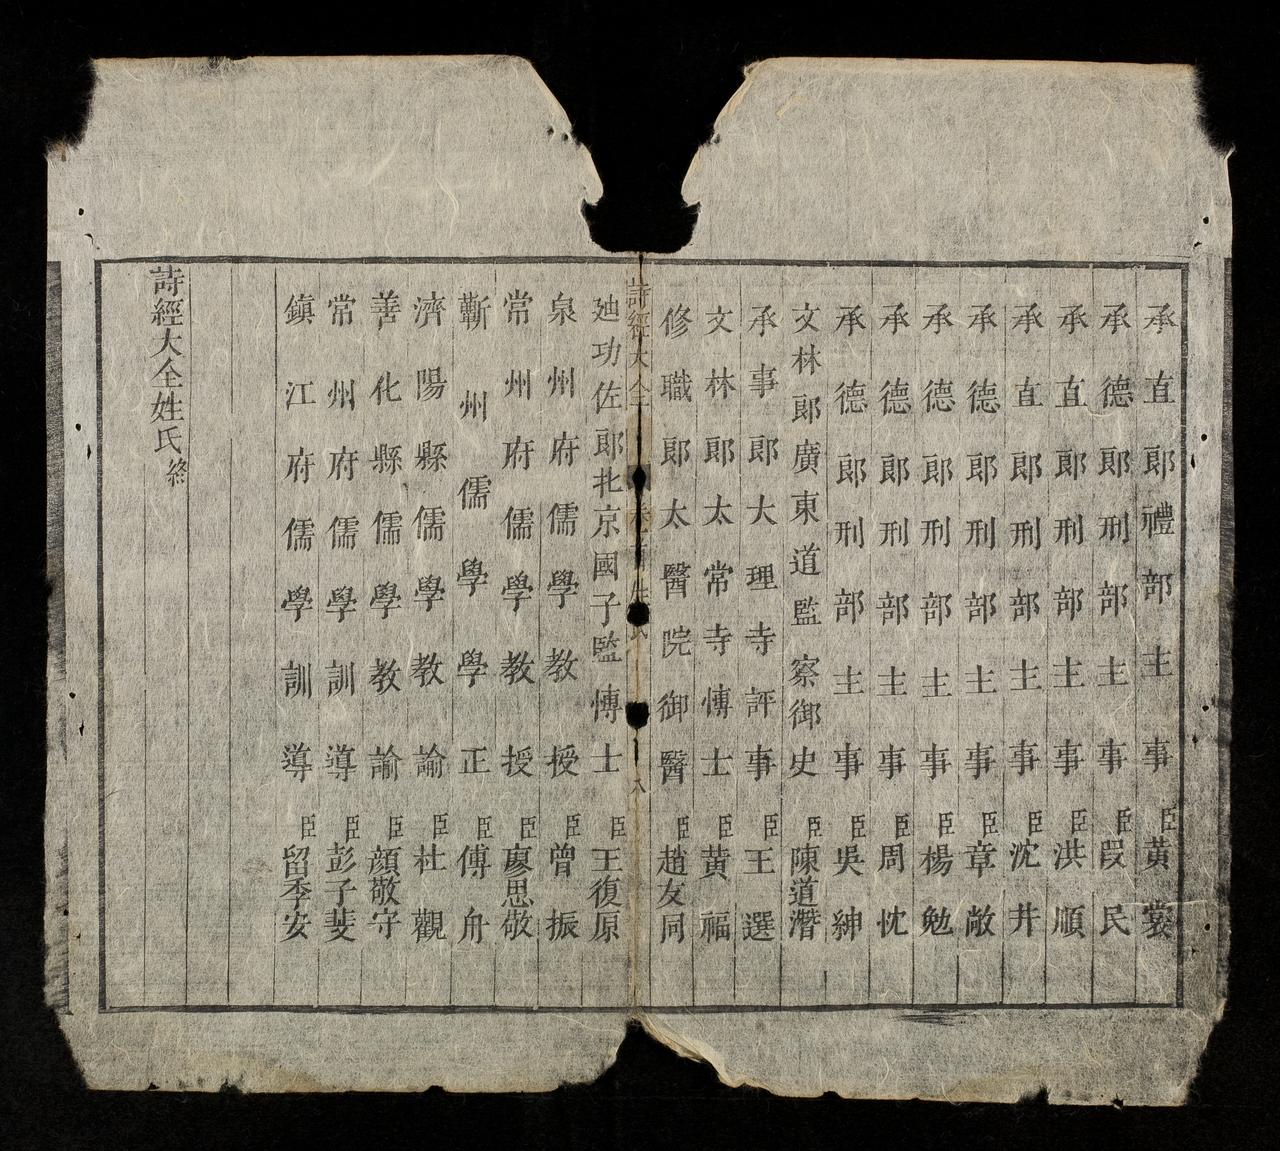 承直郎禮部主事臣黃裳
承德郎刑部主事臣段民
承直郎刑部主事臣洪順
承直郎刑部主事臣沈升
承德郎刑部主事臣章敞
承德郎刑部主事臣楊勉
承德郎刑部主事臣周忱
承德郎刑部主事臣吳紳
文林郎廣東道監察御史臣陳道潛
承事郎大理寺評事臣王選
文林郎太常寺博士臣黃福
修職郎太醫院御醫臣趙友同
詩經大全 姓氏 八
廸功佐郎北京國子監博士臣王復原
泉州府儒學教授臣曾振
常州府儒學教授臣廖思敬
蘄州儒學學正臣傅舟
濟陽縣儒學教諭臣杜觀
善化縣儒學教諭臣顔敬守
常州府儒學訓導臣彭子斐
鎮江府儒學訓導臣留季安
詩經大全姓氏終